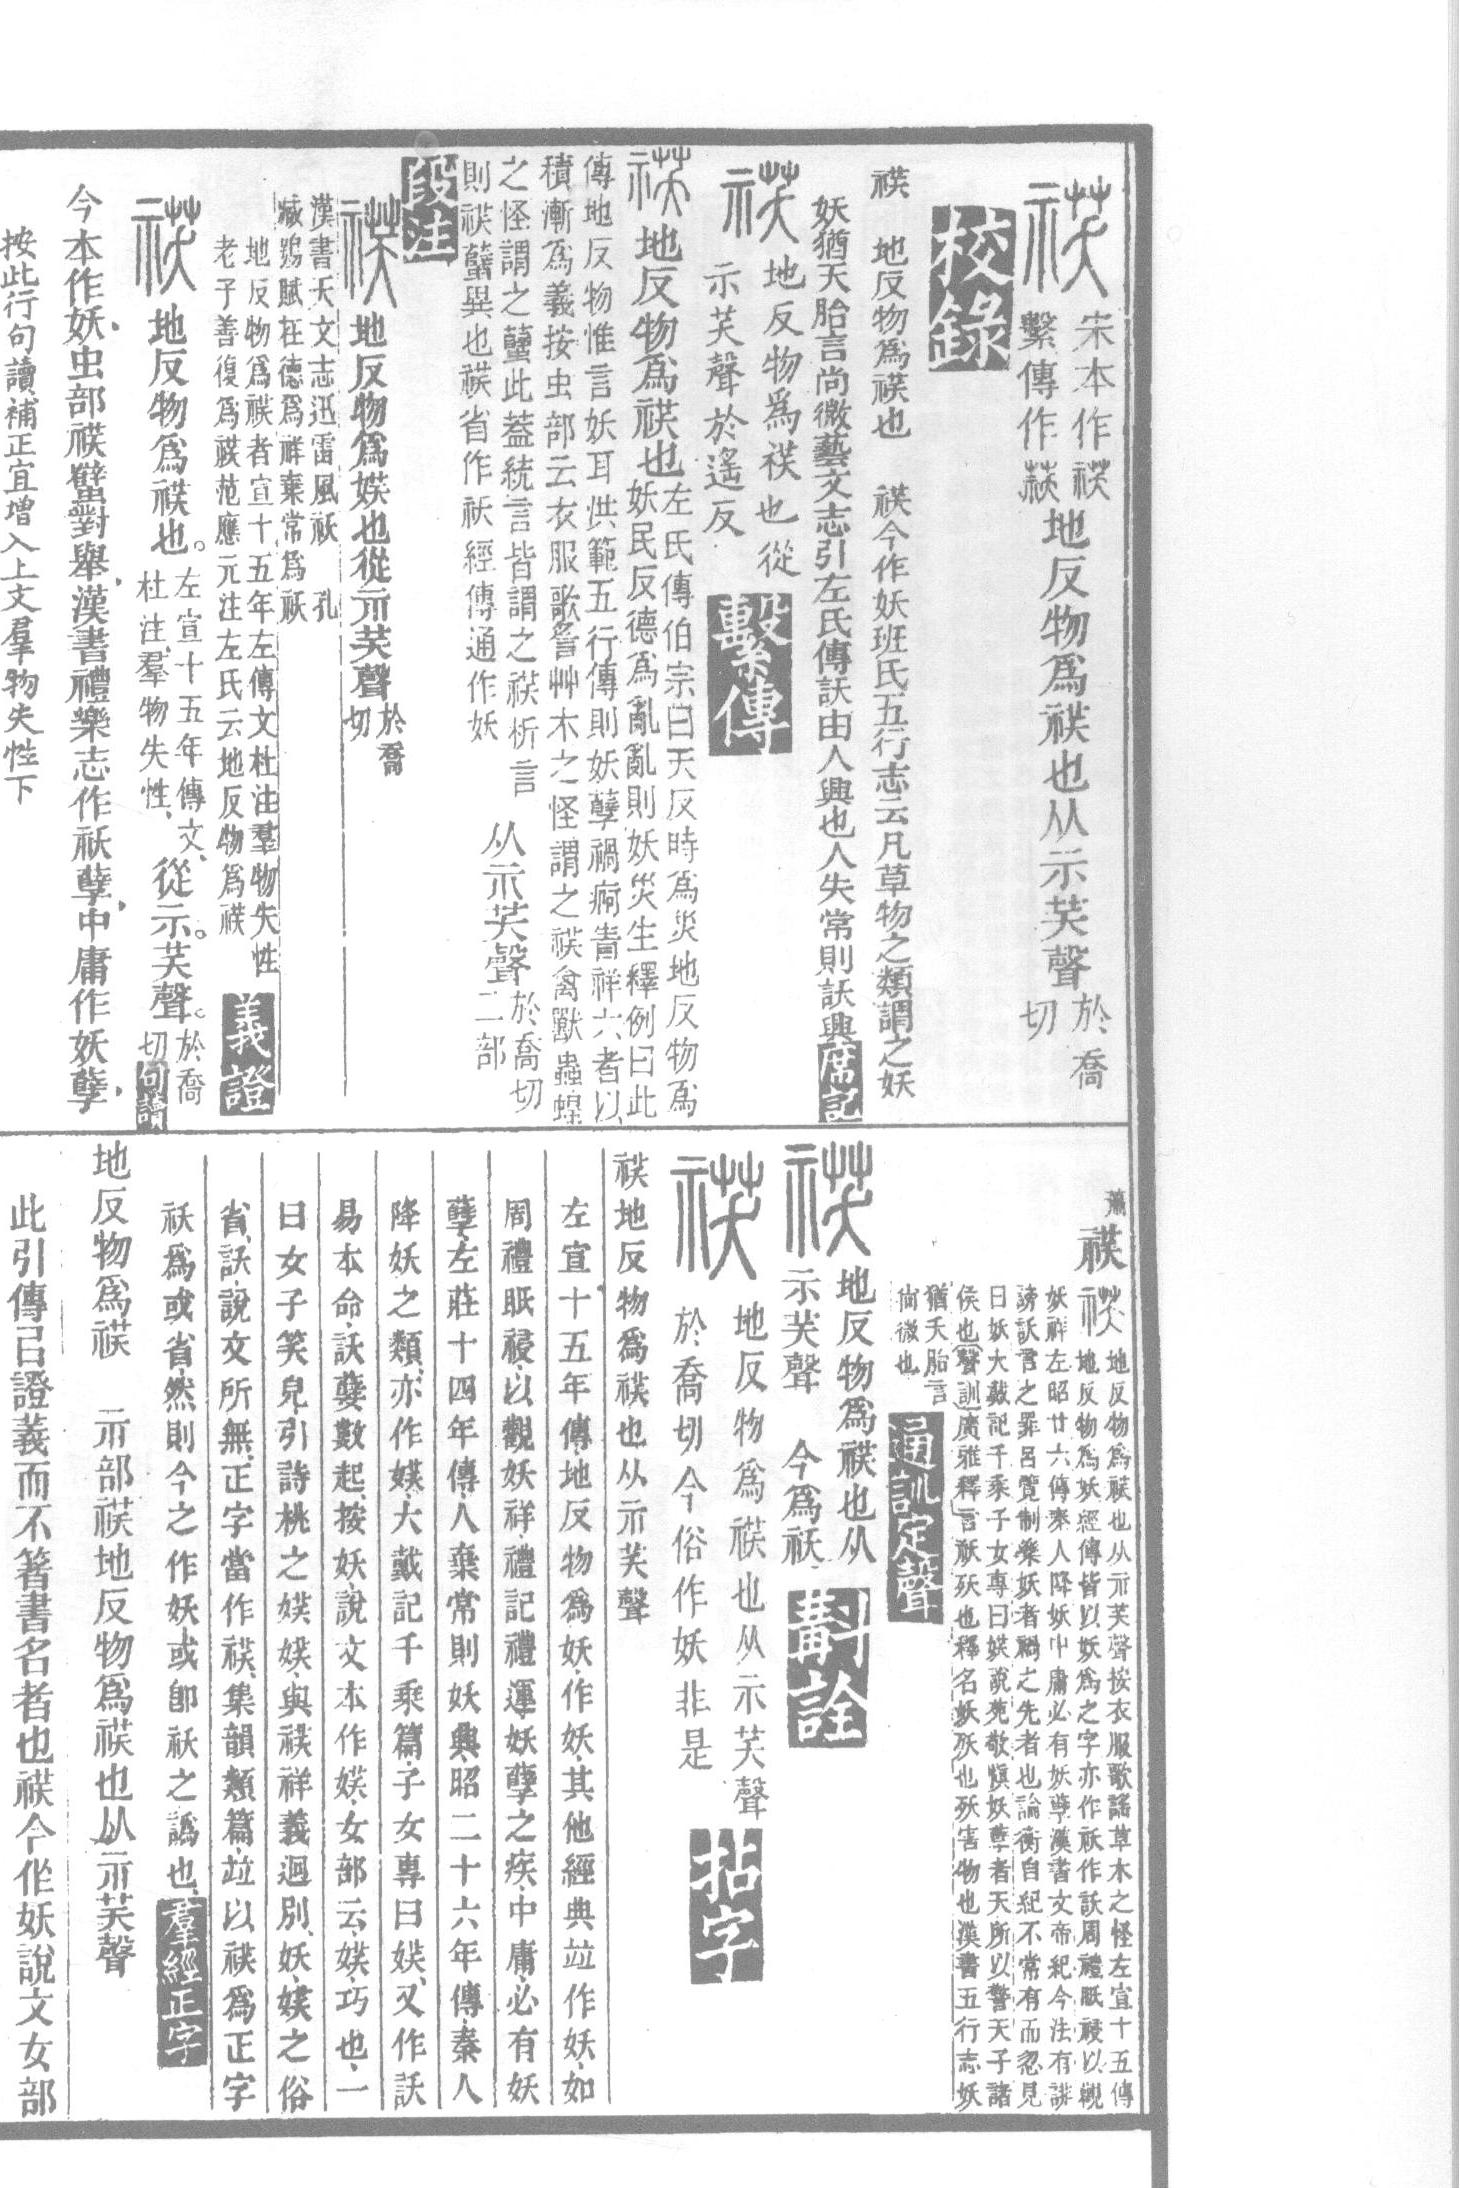 宋本作䄏
繫傳作䄏
地反物爲䄏也从示芺聲
於喬
切
校錄
䄏 地反物爲䄏也 䄏今作妖班氏五行志云凡草物之類謂之妖
妖猶夭胎言尚微藝文志引左氏傳訞由人興也人失常則訞興
席記
地反物爲䄏也從
示芺聲於遙反
繫傳
地反物爲䄏也
左氏傳伯宗曰天反時爲災地反物爲
妖民反德爲亂亂則妖災生釋例曰此
傳地反物惟言妖耳洪範五行傳則妖孽禍痾眚祥六者以
積漸爲義按虫部云衣服歌䚻艸木之怪謂之䄏禽獸蟲蝗
之怪謂之蠥此葢統言皆謂之䄏析言
則䄏蠥異也䄏省作祅經傳通作妖
从示芺聲
於喬切
二部
段注
地反物爲䄏也從示芺聲
於喬
切
漢書天文志迅雷風祅 孔
臧鴞賦枉德爲祥棄常爲祅
地反物爲䄏者宣十五年左傳文杜注羣物失性
老子善復爲䄏范應元注左氏云地反物爲䄏
義證
地反物爲䄏也。
左宣十五年傳文、
杜注、羣物失性、
從示芺聲。
於喬
切
句讀
今本作妖、虫部䄏蠥對舉、漢書禮樂志作祅孽、中庸作妖孽、
按此行句讀補正宜增入上文羣物失性下
蕭
䄏
地反物爲䄏也从示芺聲按衣服歌謠草木之怪左宣十五傳
地反物爲妖經傳皆以妖爲之字亦作祅作訞周禮眡祲以觀
妖祥左昭廿六傳秦人降妖中庸必有妖孽漢書文帝紀今法有誹
謗訞言之罪呂覽制樂妖者禍之先者也論衡自紀不常有而忽見
曰妖大戴記千乘子女專曰媄說苑敬慎妖孽者天所以警天子諸
侯也聲訓廣雅釋言祅殀也釋名妖殀也殀害物也漢書五行志妖
猶夭胎言
尚微也
通訓定聲
地反物爲䄏也从
示芺聲 今爲祅
斠詮
地反物爲䄏也从示芺聲
於喬切今俗作妖非是
拈字
䄏地反物爲䄏也从示芺聲
左宣十五年傳地反物爲妖作妖其他經典竝作妖如
周禮眡祲以觀妖祥禮記禮運妖孽之疾中庸必有妖
孽左莊十四年傳人棄常則妖興昭二十六年傳秦人
降妖之類亦作媄大戴記千乘篇子女專曰媄又作訞
易本命訞孽數起按妖說文本作媄女部云媄巧也一
曰女子笑皃引詩桃之媄媄與䄏祥義迥別妖媄之俗
省訞說文所無正字當作䄏集韻類篇竝以䄏爲正字
祅爲或省然則今之作妖或卽祅之譌也
羣經正字
地反物爲䄏 示部䄏地反物爲䄏也从示芺聲
此引傳曰證義而不箸書名者也䄏今作妖說文女部